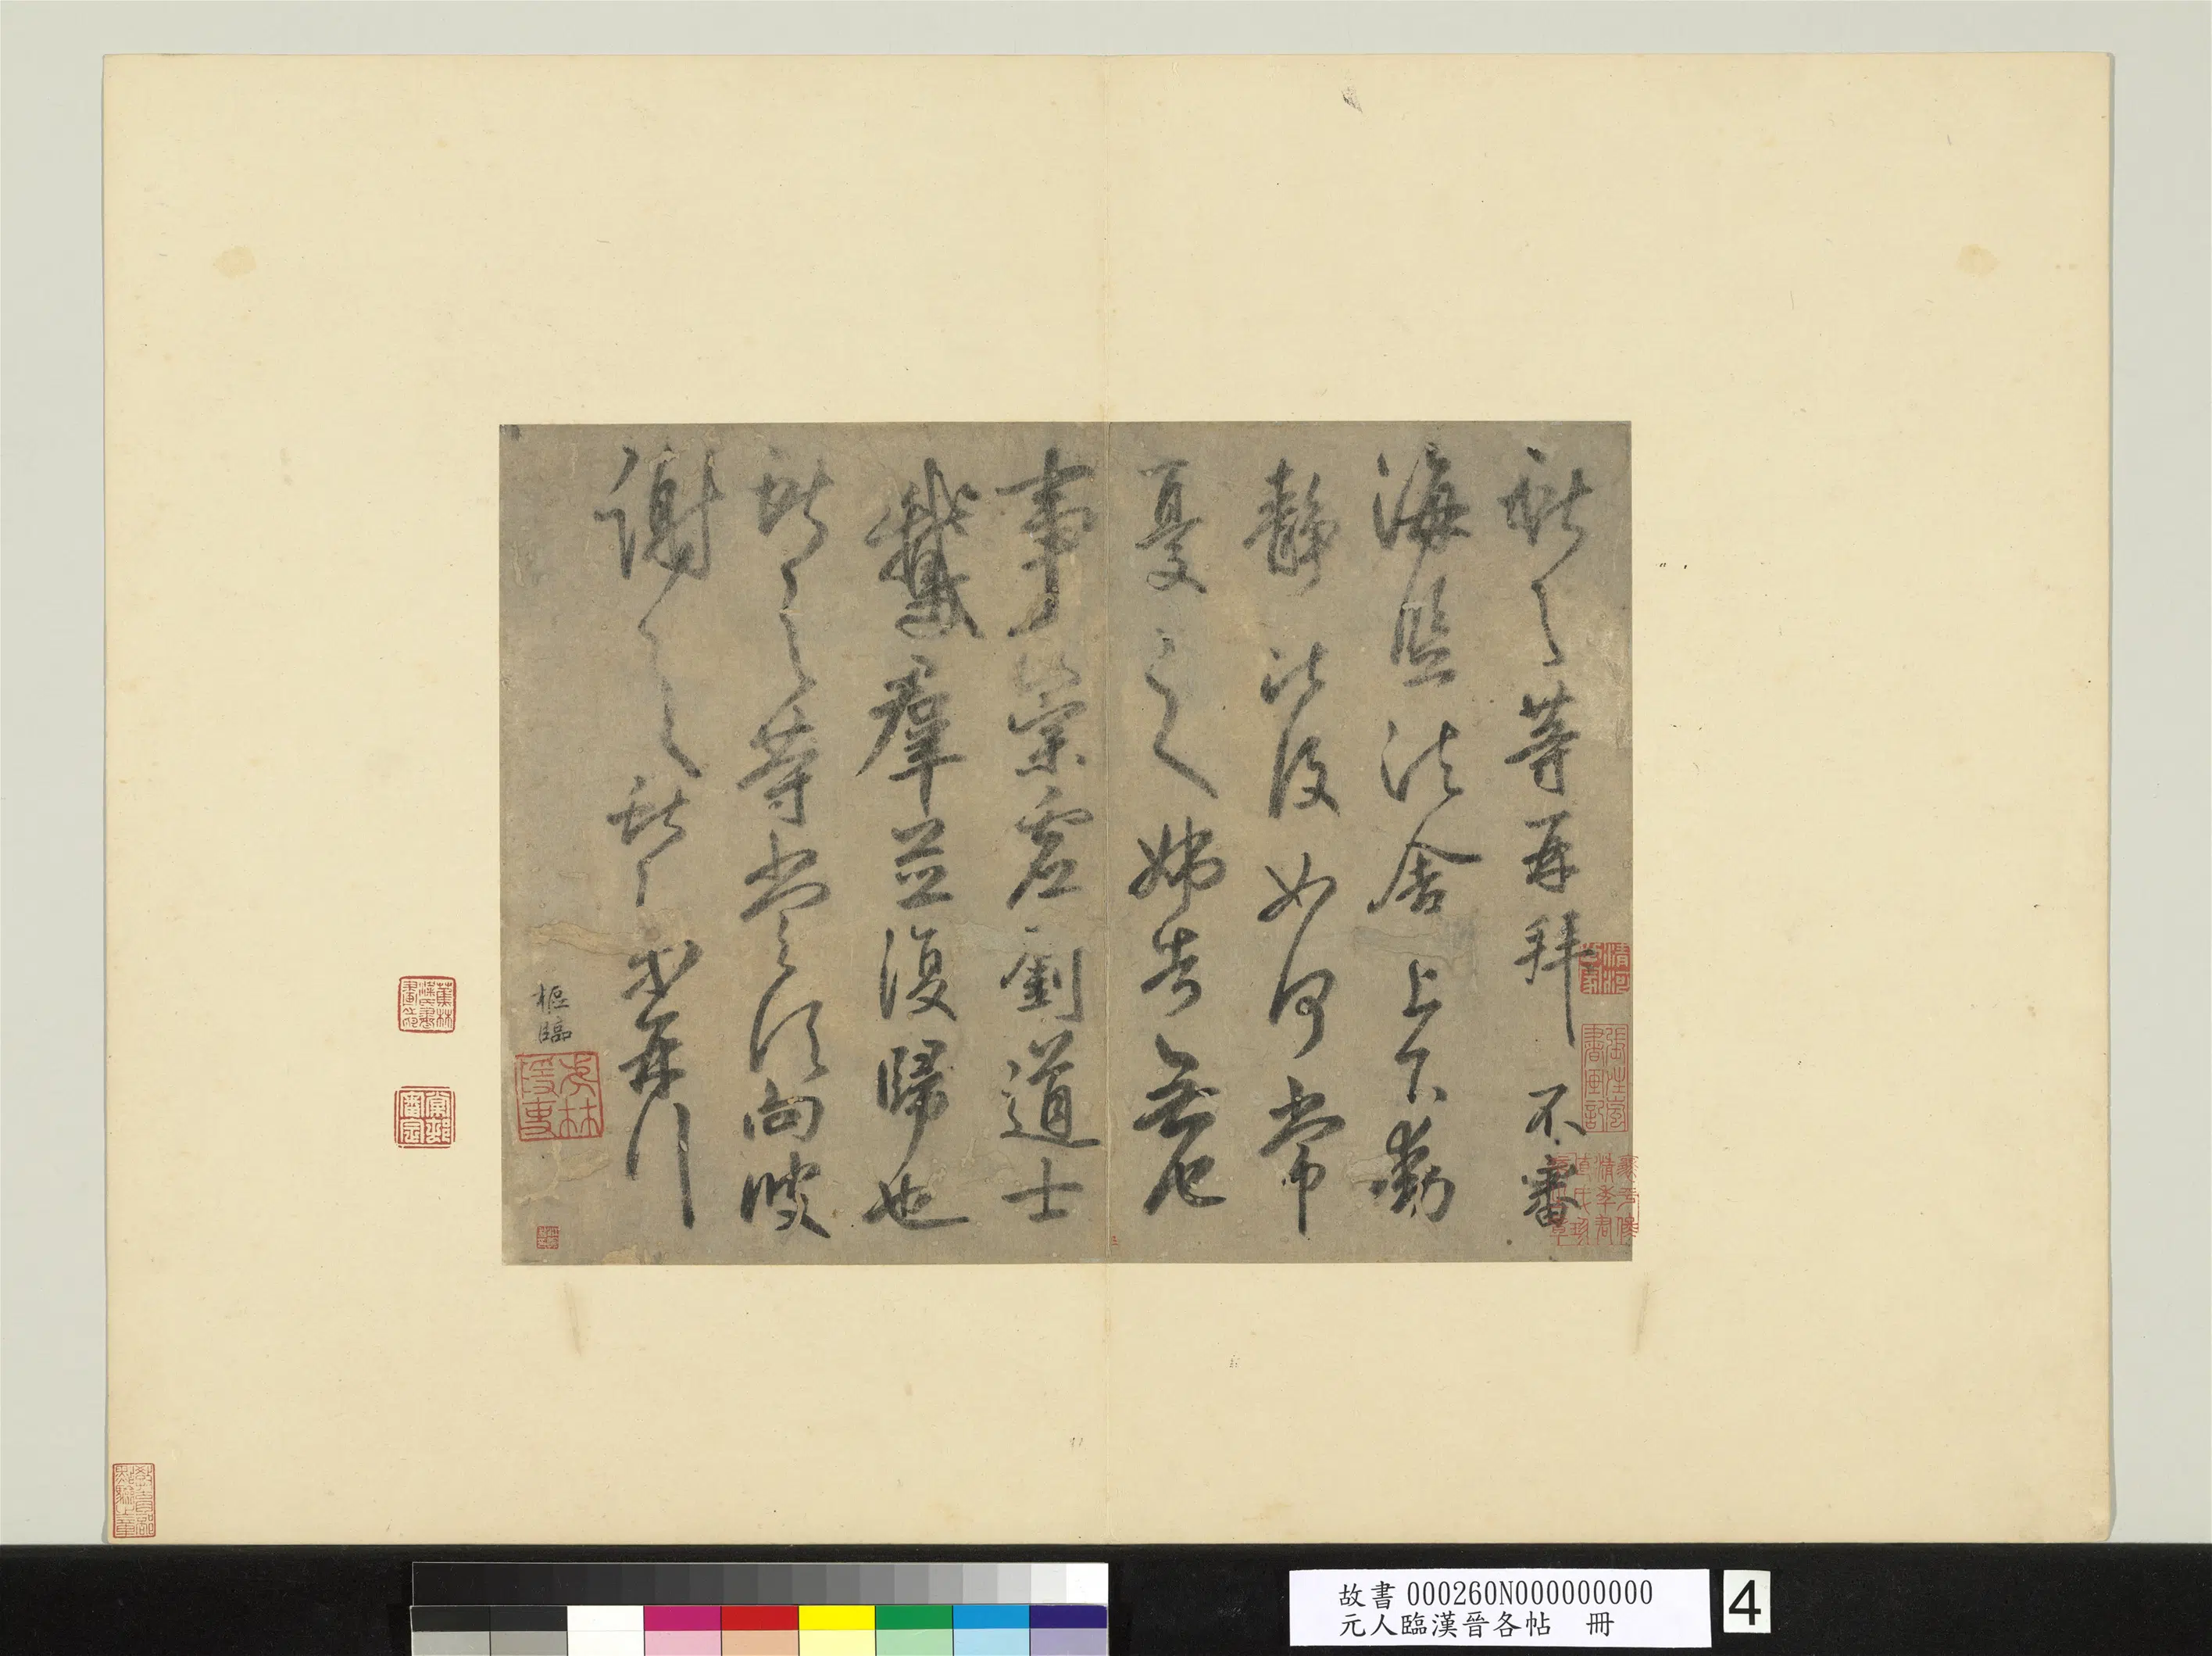 獻之等再拜不審
海鹽諸舍上下動
靜比復如何常
憂之姊告無他
事崇虛劉道士
鵝羣並復歸也
獻之等當須向彼
謝之獻之等再拜
樞臨
故書 000260N000000000
元人臨漢晉各帖 冊
4